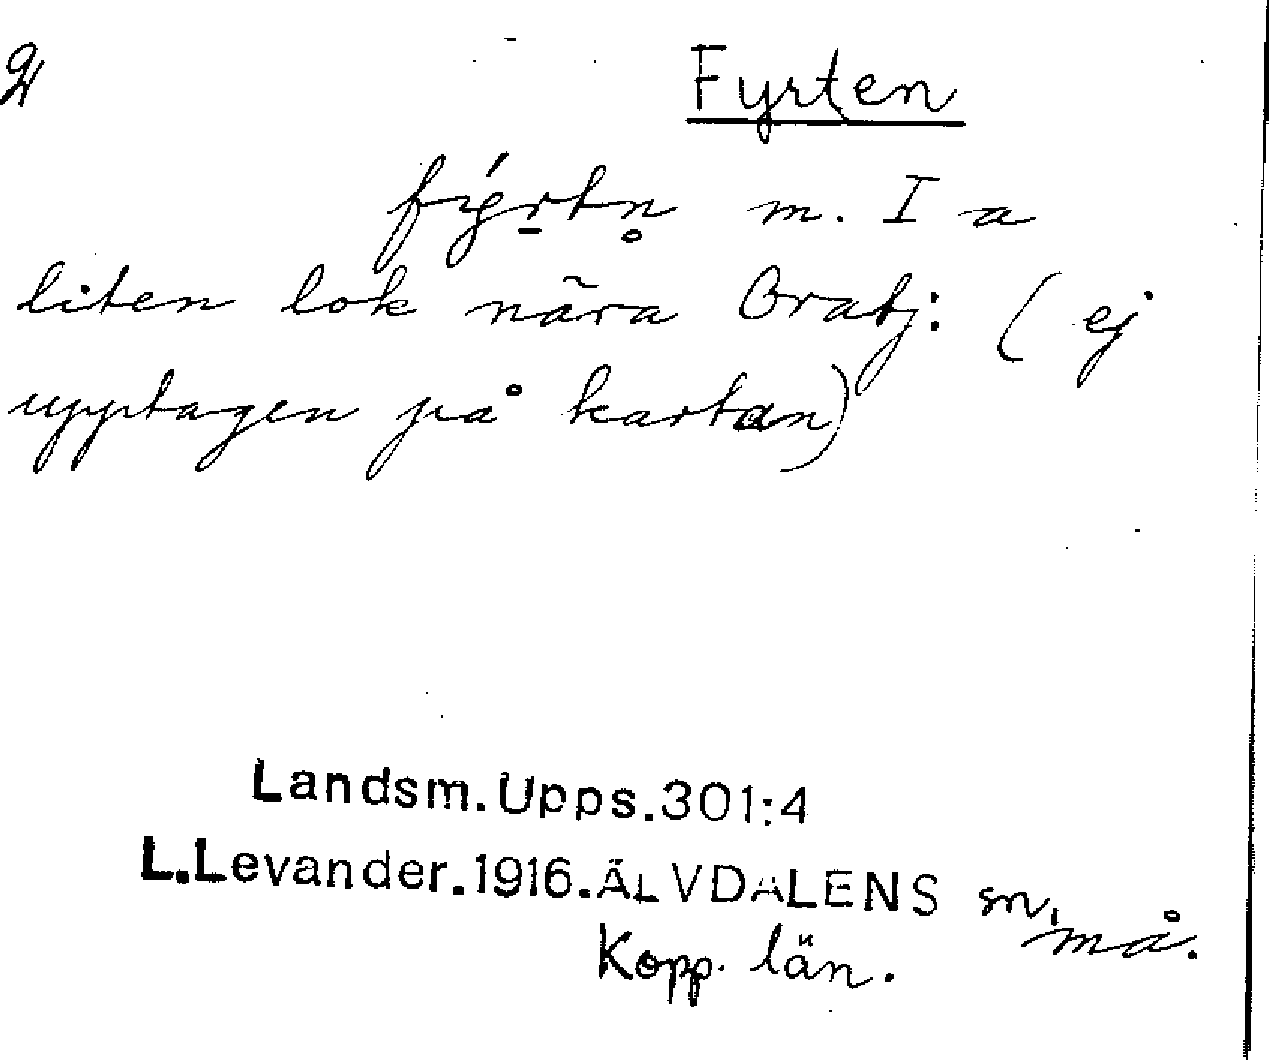 Fyrten
fý̱rtn̥ m. I a
liten lok nära Oratj: (ej
upptagen på kartan)
Landsm.Upps.301:4
L.Levander.1916.ÄLVDALENS sn, må.
Kopp. län.